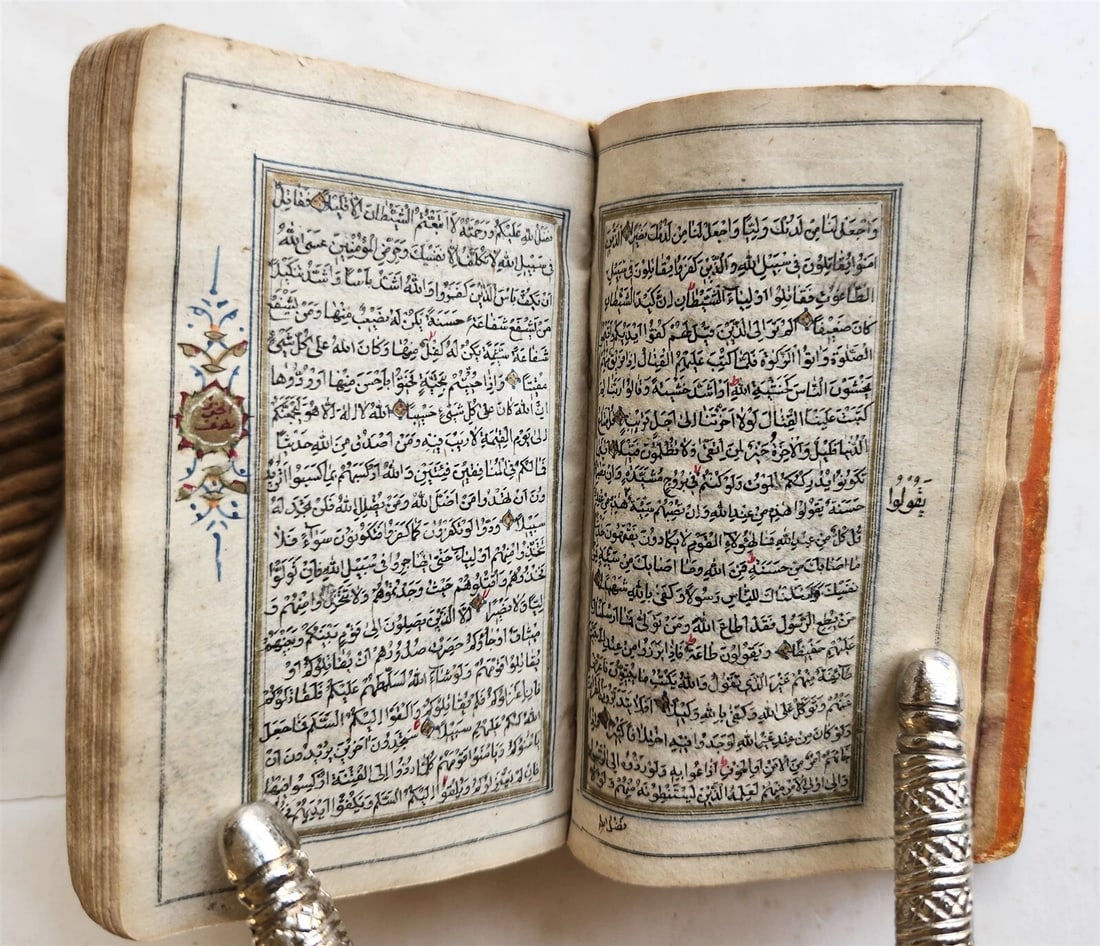 واجعل لنا من لدنك وليا واجعل لنا من لدنك نصيرا الذين
امنوا يقاتلون في سبيل الله والذين كفروا يقاتلون في سبيل
الطاغوت فقاتلوا اولياء الشيطان ان كيد الشيطان
كان ضعيفا الم تر الى الذين قيل لهم كفوا ايديكم
الصلوة واتوا الزكوة فلما كتب عليهم القتال اذا فريق منهم
يخشون الناس كخشية الله او اشد خشية وقالوا ربنا لم
كتبت علينا القتال لولا اخرتنا الى اجل قريب قل متاع
الدنيا قليل والاخرة خير لمن اتقى ولا تظلمون فتيلا
تكونوا يدرككم الموت ولو كنتم في بروج مشيدة وان تصبهم
يقولوا
حسنة يقولوا هذه من عند الله وان تصبهم سيئة هذه
قل كل من عند الله فمال هؤلاء القوم لا يكادون يفقهون
ما اصابك من حسنة فمن الله وما اصابك من سيئة فمن
نفسك وارسلناك للناس رسولا وكفى بالله شهيدا
من يطع الرسول فقد اطاع الله ومن تولى فما ارسلناك
عليهم حفيظا ويقولون طاعة فاذا برزوا من عندك
طائفة منهم غير الذي تقول والله يكتب ما يبيتون فاعرض
عنهم وتوكل على الله وكفى بالله وكيلا افلا يتدبرون القران
ولو كان من عند غير الله لوجدوا فيه اختلافا كثيرا
جاءهم امر من الامن او الخوف اذاعوا به ولو ردوه الى الرسول
والى اولي الامر منهم لعلمه الذين يستنبطونه منهم ولولا
فضل الله
فضل الله عليكم ورحمته لاتبعتم الشيطان الا قليلا فقاتل
في سبيل الله لا تكلف الا نفسك وحرض المؤمنين عسى الله
ان يكف باس الذين كفروا والله اشد باسا واشد تنكيلا
من يشفع شفاعة حسنة يكن له نصيب منها ومن يشفع
شفاعة سيئة يكن له كفل منها وكان الله على كل شيئ
مقيتا واذا حييتم بتحية فحيوا باحسن منها او ردوها
ان الله كان على كل شيئ حسيبا الله لا اله الا هو ليجمعنكم
الى يوم القيمة لا ريب فيه ومن اصدق من الله حديثا
فمالكم في المنافقين فئتين والله اركسهم بما كسبوا اتريد
ون ان تهدوا من اضل الله ومن يضلل الله فلن تجد له
سبيلا ودوا لو تكفرون كما كفروا فتكونون سواء فلا
تتخذوا منهم اولياء حتى يهاجروا في سبيل الله فان تولوا
فخذوهم واقتلوهم حيث وجدتموهم ولا تتخذوا منهم و
ليا ولا نصيرا الا الذين يصلون الى قوم بينكم وبينهم
ميثاق او جاؤكم حصرت صدورهم ان يقاتلوكم او
يقاتلوا قومهم ولو شاء الله لسلطهم عليكم فلقاتلوكم
فان اعتزلوكم فلم يقاتلوكم والقوا اليكم السلم فما جعل
الله لكم عليهم سبيلا ستجدون اخرين يريدون ان
يامنوكم ويامنوا قومهم كلما ردوا الى الفتنة اركسوا فيها
فان لم يعتزلوكم ويلقوا اليكم السلم ويكفوا ايديهم